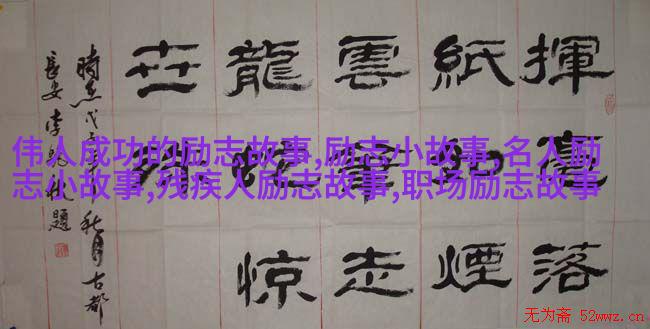 揮毫落
紙如煙
雲筆走
龍蛇惊
世
秋月古都
長安李
題
伟人成功的励志故事,励志小故事,名人励
志小故事,残疾人励志故事,职场励志故事
无为斋 52wwz.cn